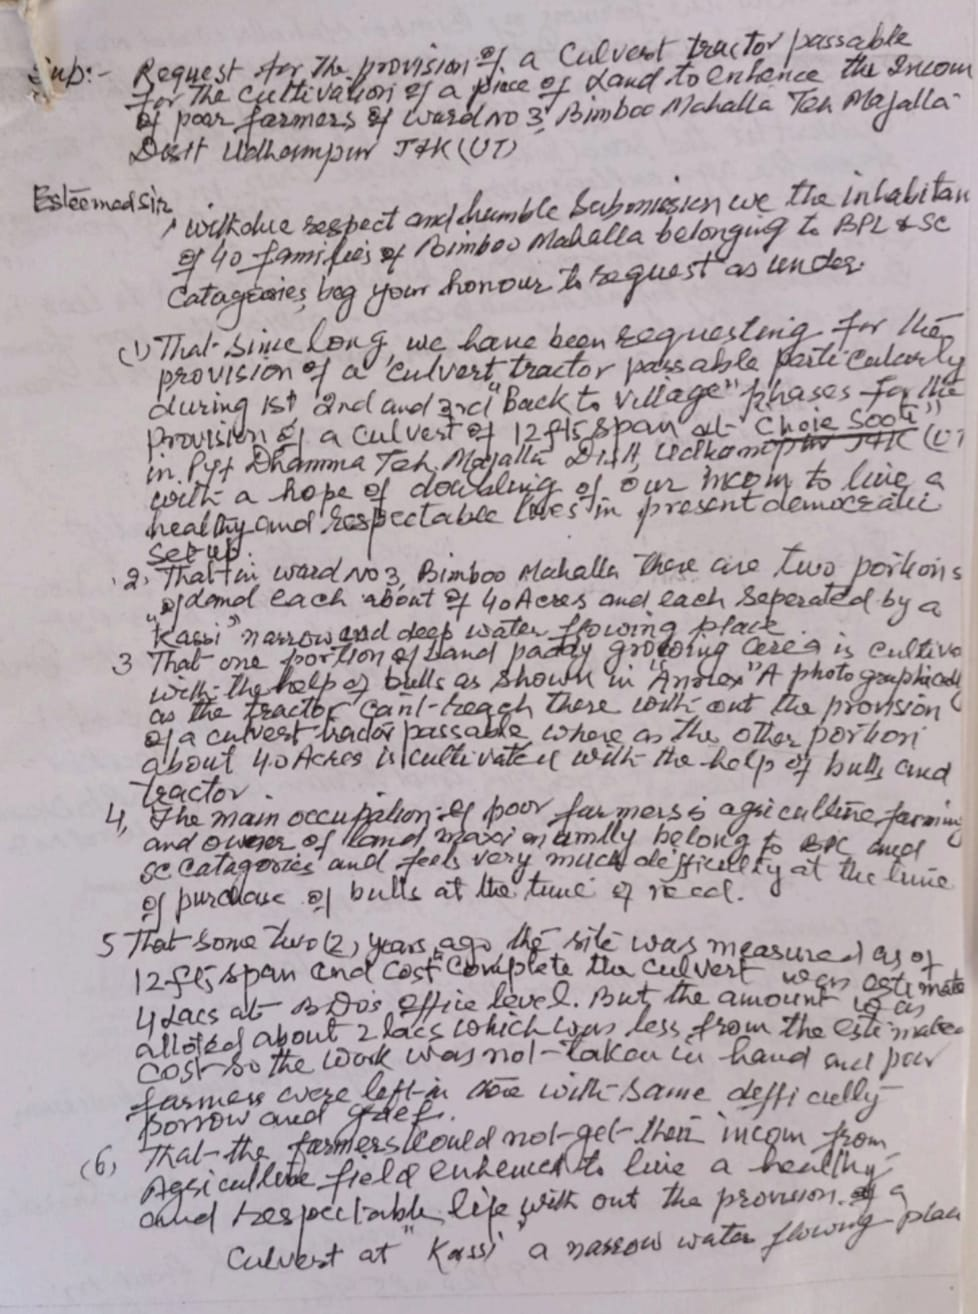 Sub:- Request for the provision of a Culvert tractor passable
for the cultivation of a piece of Land to enhence the Incom
of poor farmers of ward no 3, Bimboo Mahalla Teh Majalta
Distt Udhampur J&K (UT)
Esteemed Sir,
with due respect and humble Submission we the inhabitan
of 40 families of Bimboo Mahalla belonging to BPL & SC
Catageories, beg your honour to request as under.
(1) That since long, we have been requesting for the
provision of a culvert tractor passable particularly
during 1st 2nd and 3rd "Back to village" phases for the
provision of a culvert of 12 fts span at "Choie Soot"
in Pyt Dhamma Teh Majalta Distt, Udhampur J&K (UT
with a hope of doubling of our incom to live a
healthy and respectable lives in present democratic
set up.
2, That in ward No 3, Bimboo Mahalla there are two portions
of land each about of 40 Acres and each seperated by a
"Kassi" narrow and deep water flowing place
3 That one portion of Land paddy growing area is cultiva
with the help of bulls as shown in "Annex" A photographical
as the tractor can't reach there with out the provision
of a culvert tractor passable where as the other portion
about 40 Acres is cultivated with the help of bulls and
tractor.
4, The main occupation of poor farmers is agriculture farming
and owner of land belong to BPL and
SC Catagories and feels very much defficulty at the time
of purchase of bulls at the time of need.
5 That some two (2) years ago the site was measured as of
12 fts span and cost complete the culvert was estimate
4 Lacs at BDO's office level. But the amount was
alloted about 2 lacs which was less from the estimated
cost so the work was not taken in hand and poor
farmers were left in with same defficully
sorrow and grief.
(6) That the farmers could not get their incom from
Agriculture field enhenced to live a healthy
and respectable life with out the provision of a
culvert at "Kassi" a narrow water flowing place